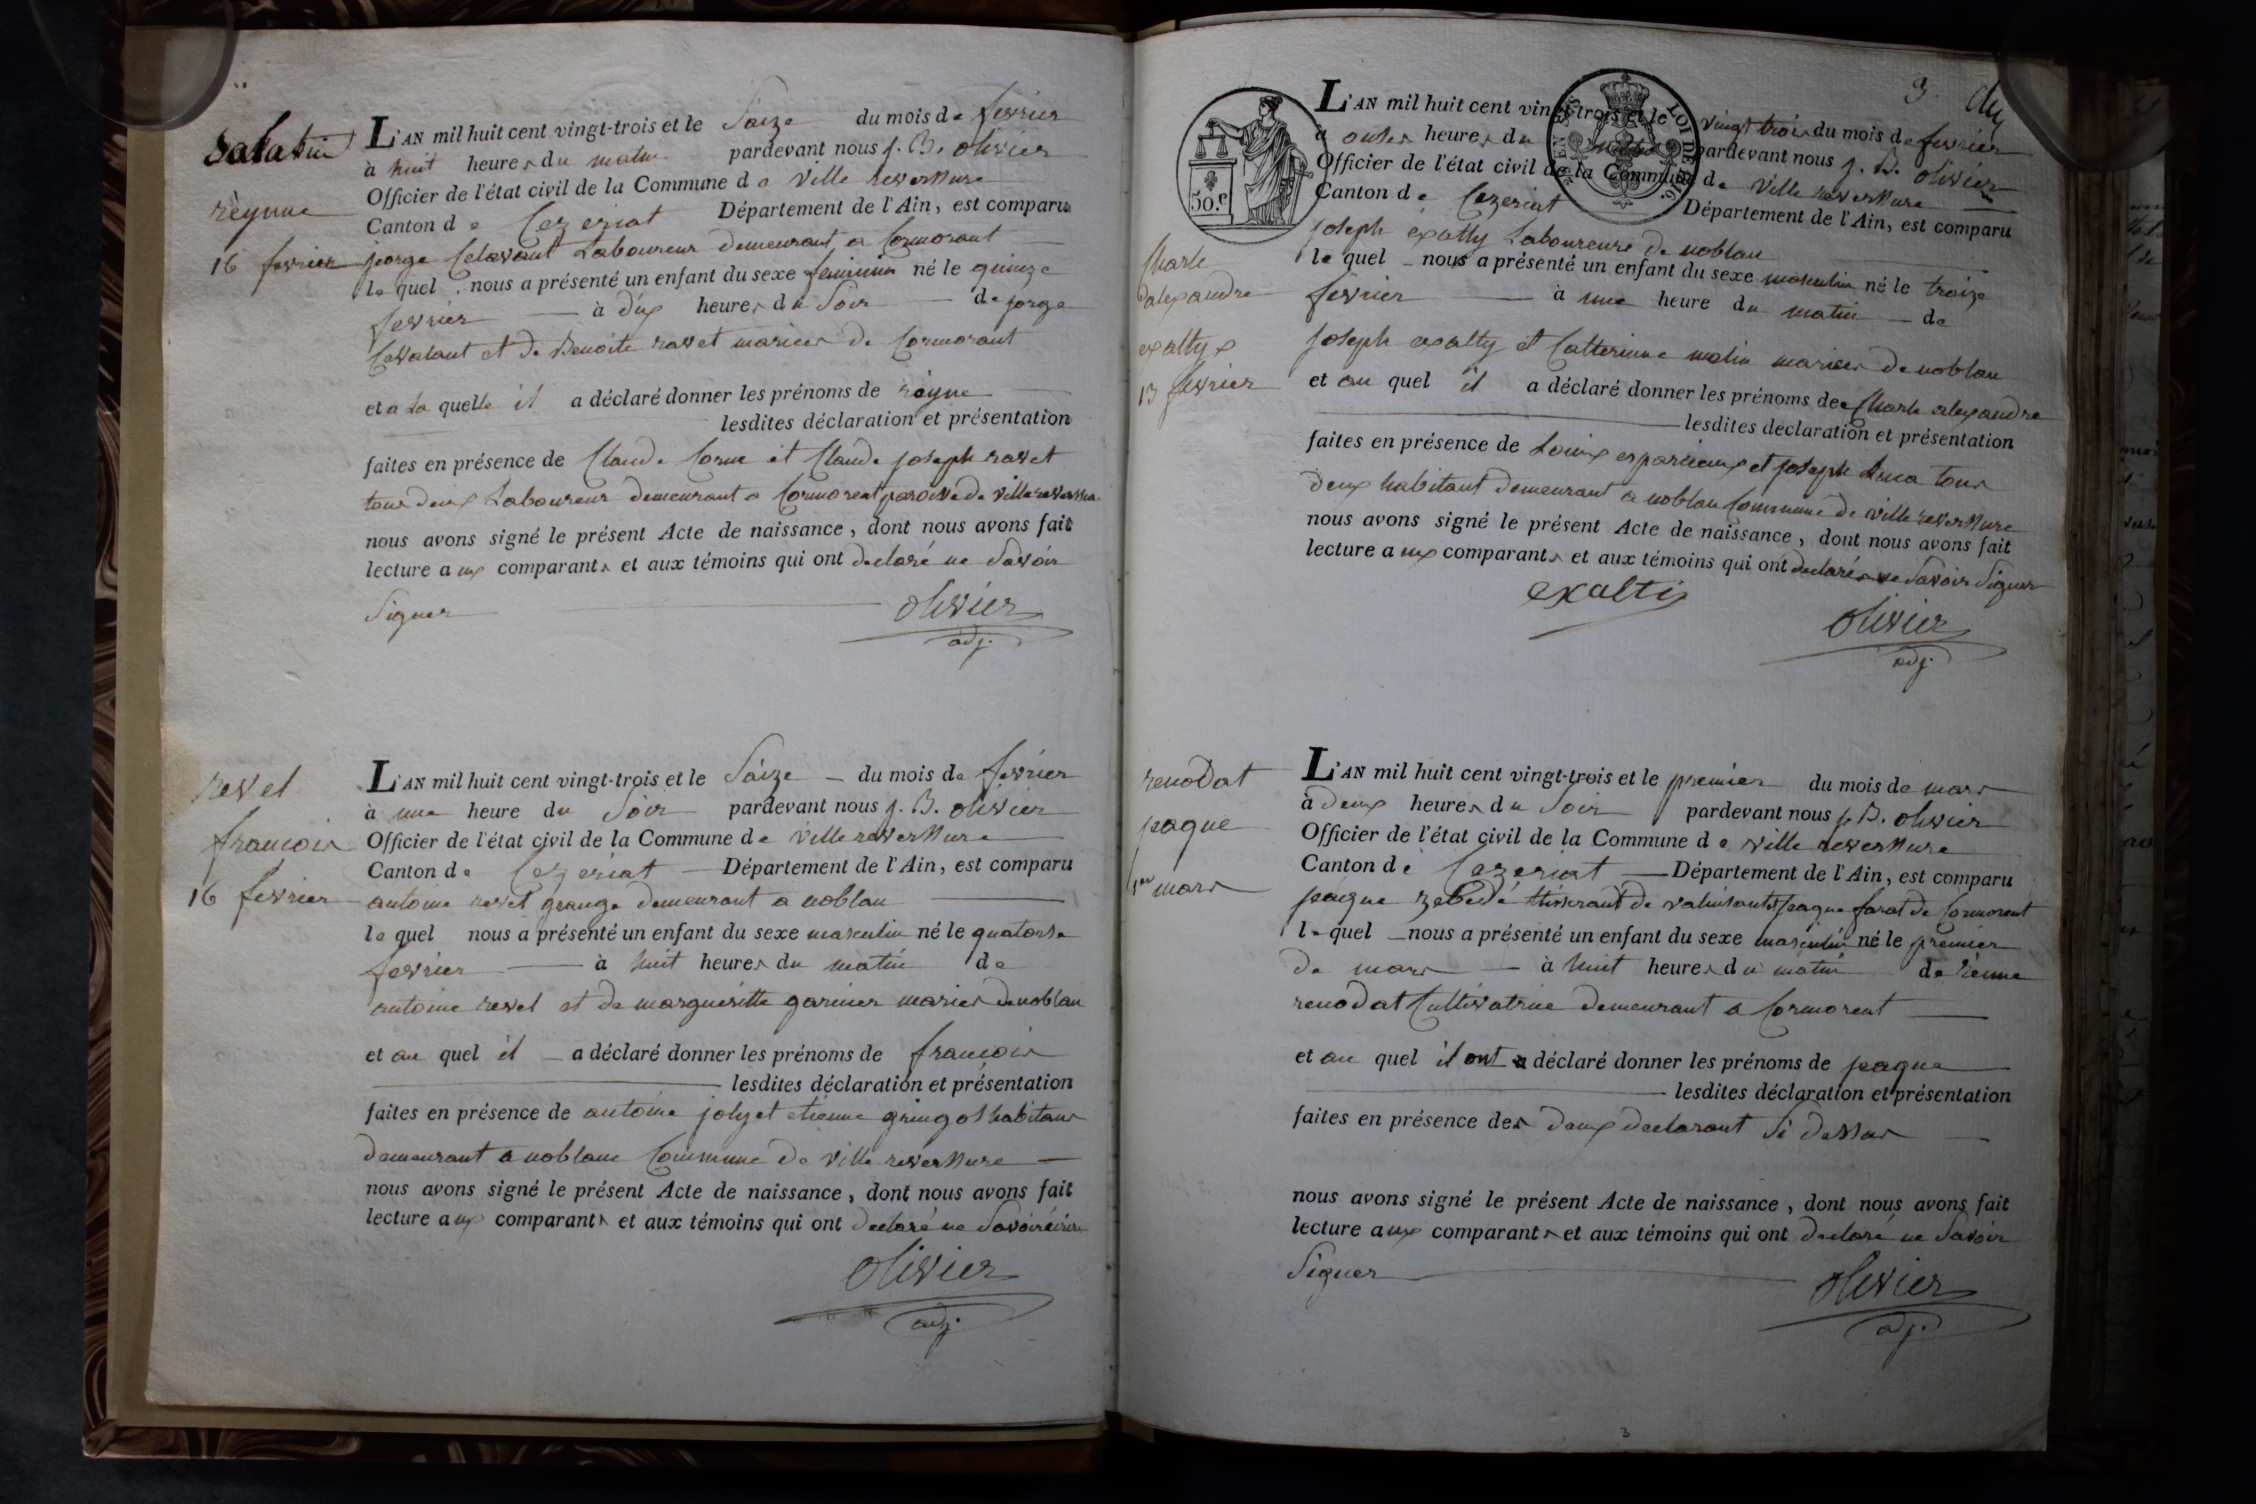 rèynne
16 fevrier
L'AN mil huit cent vingt-trois et le Saize du mois de fevrier
à huit heures du matin pardevant nous j. B. olivier
Officier de l'état civil de la Commune de Ville reversure
Canton de Cezeriat Département de l'Ain, est comparu
jorge Laboureur demeurant a Cormorant
le quel nous a présenté un enfant du sexe feminin né le quinze
fevrier à dix heures du Soir de jorge
et de Benoite ravet maries de Cormorant
et a la quelle il a déclaré donner les prénoms de rèyne
lesdites déclaration et présentation
faites en présence de Claude Corne et Claude joseph ravet
tous deux Laboureur demeurant a Cormorent paroisse de
nous avons signé le présent Acte de naissance, dont nous avons fait
lecture aux comparants et aux témoins qui ont declaré ne Savoir
Signer
olivier
adj.
revel
francois
16 fevrier
L'AN mil huit cent vingt-trois et le Saize du mois de fevrier
à une heure du Soir pardevant nous j. B. olivier
Officier de l'état civil de la Commune de Ville reversure
Canton de Cezeriat Département de l'Ain, est comparu
antoine revel grange demeurant a noblan
le quel nous a présenté un enfant du sexe masculin né le quatorse
fevrier à huit heures du matin de
antoine revel et de margueritte garnier maries de noblan
et au quel il a déclaré donner les prénoms de francois
lesdites déclaration et présentation
faites en présence de antoine joly et etienne habitans
demeurant a noblanc Commune de Ville reversure
nous avons signé le présent Acte de naissance, dont nous avons fait
lecture aux comparants et aux témoins qui ont declaré ne Savoir
olivier
adj.
3.
50.c
LOI DE 1816.
Charle
alexandre
exalty
13 fevrier
L'AN mil huit cent vingt-trois et le vingt trois du mois de fevrier
à heures du pardevant nous j. B. olivier
Officier de l'état civil de la Commune de Ville reversure
Canton de Cezeriat Département de l'Ain, est comparu
joseph exalty Laboureure de noblan
le quel nous a présenté un enfant du sexe masculin né le traize
fevrier à une heure du matin de
joseph exalty et Catterinne molin maries de noblan
et au quel il a déclaré donner les prénoms de Charle alexandre
lesdites déclaration et présentation
faites en présence de et joseph Luca tous
deux habitant demeurant a noblan Commune de ville reversure
nous avons signé le présent Acte de naissance, dont nous avons fait
lecture aux comparants et aux témoins qui ont declarés ne Savoir Signer
exalti
olivier
adj.
renodat
paque
1er mars
L'AN mil huit cent vingt-trois et le premier du mois de mars
à deux heures du Soir pardevant nous j. B. olivier
Officier de l'état civil de la Commune de ville reversure
Canton de Cezeriat Département de l'Ain, est comparu
paque de paque de Cormorent
le quel nous a présenté un enfant du sexe masculin né le premier
de mars à huit heures du matin de
renodat Cultivatrice demeurant a Cormorent
et au quel il ont déclaré donner les prénoms de paque
lesdites déclaration et présentation
faites en présence des deux declarant Si dessus
nous avons signé le présent Acte de naissance, dont nous avons fait
lecture aux comparants et aux témoins qui ont declaré ne Savoir
Signer
olivier
adj.
3